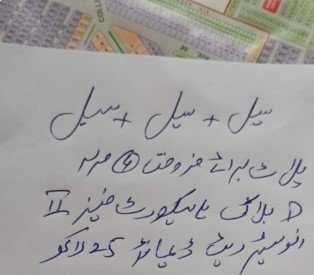 سیل + سیل + سیل
پلاٹ برائے فروخت ④ مرلہ
D بلاک ہائیکورٹ فیز II
ریٹ ڈیمانڈ 25 لاکھ